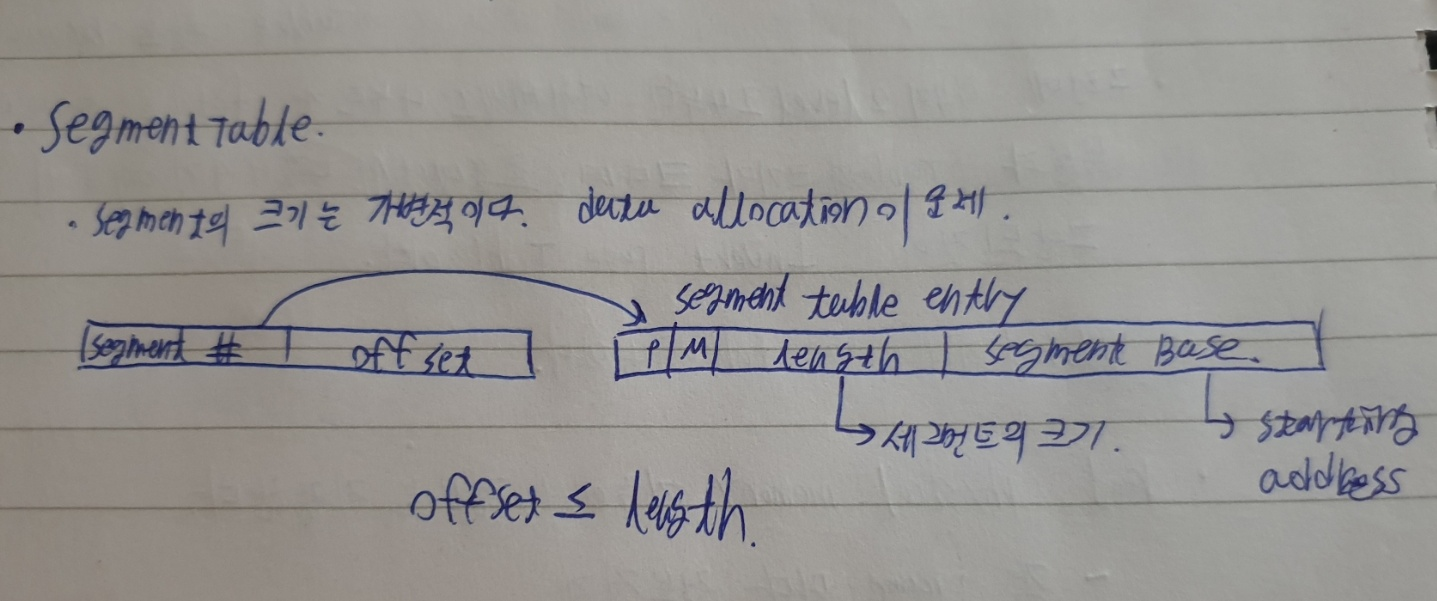 • Segment Table.
• segment의 크기는 가변적이다. data allocation이 문제.
segment table entry
segment # offset P M length segment Base.
세그먼트의 크기. starting address
offset ≤ length.